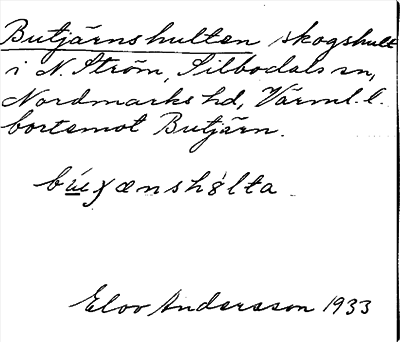 Butjärnshulten skogshult
i N. Ström, Silbodals sn,
Nordmarks hd, Värml. l.
bortemot Butjärn.
Elov Andersson 1933